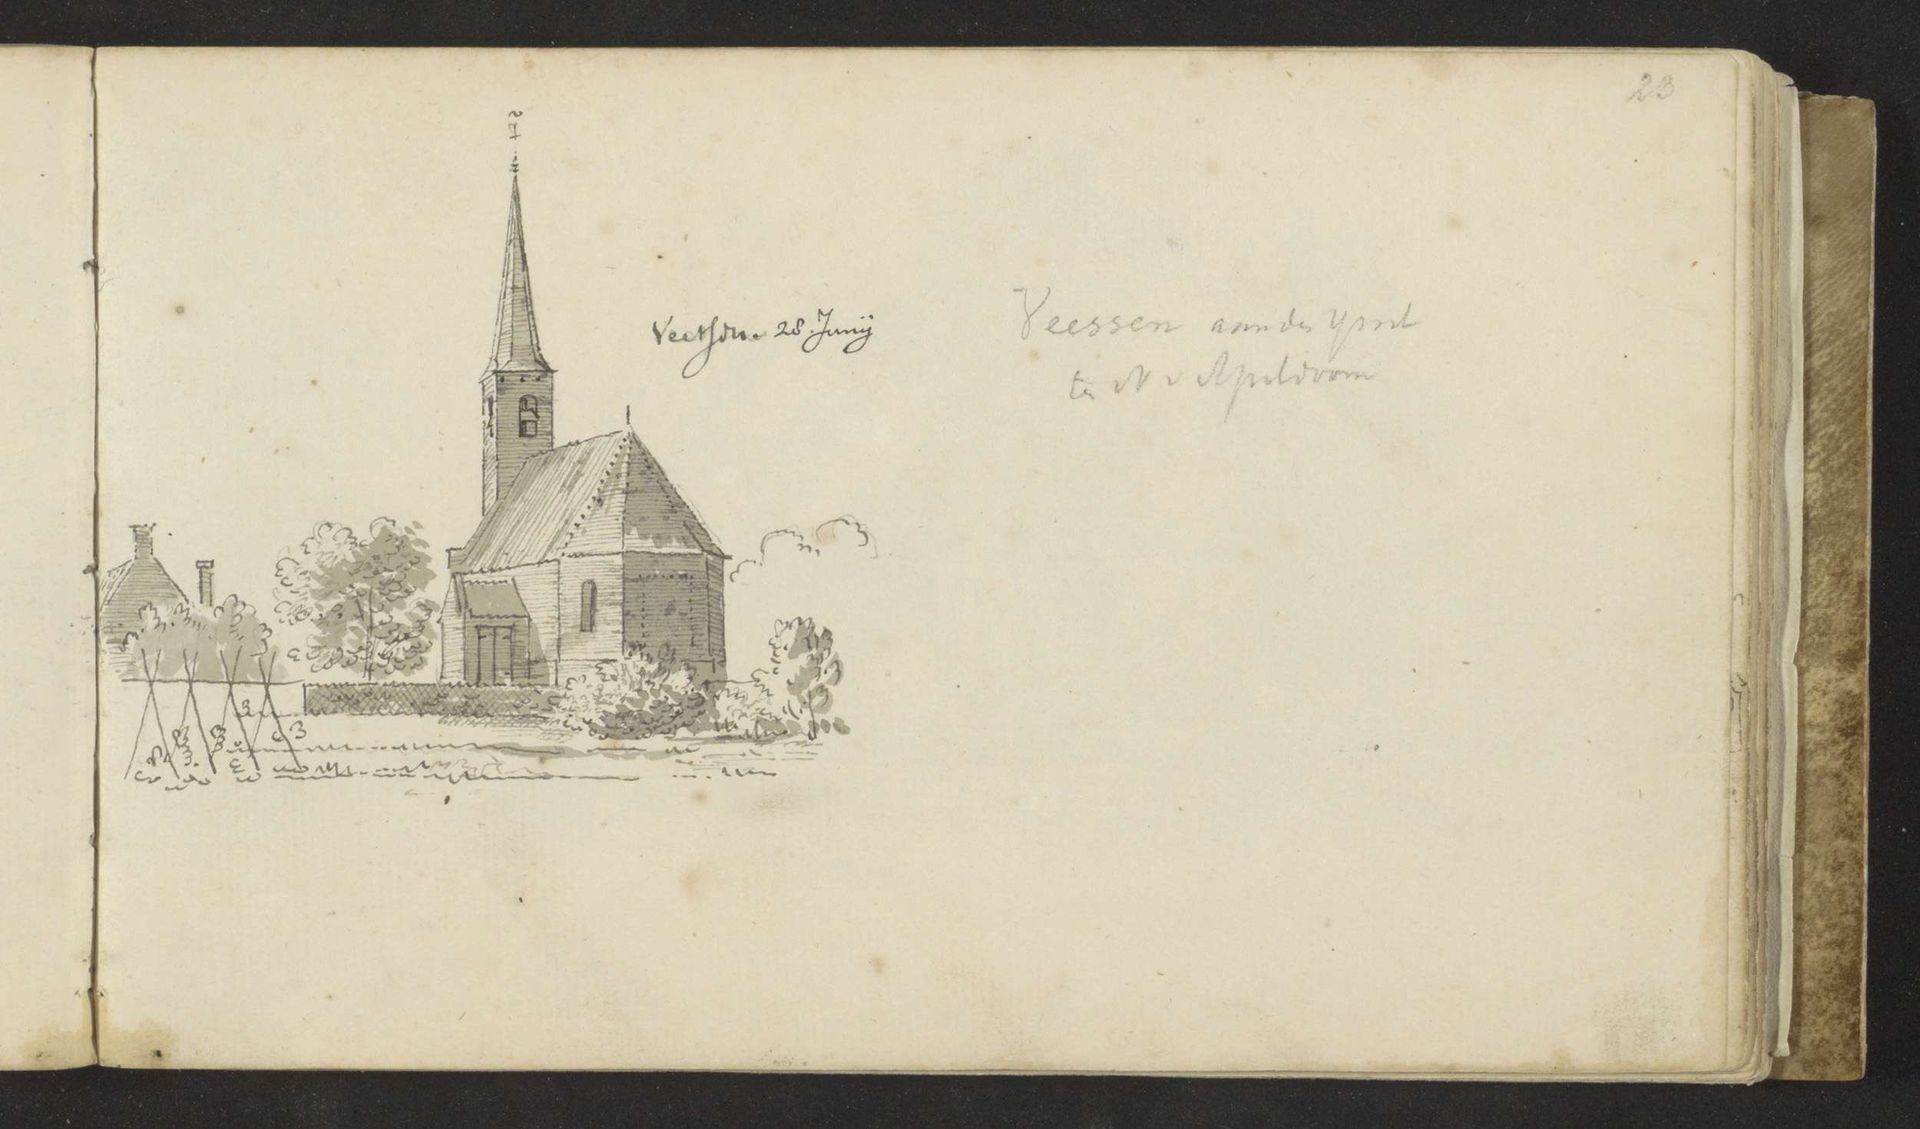 23
28 Junij
Veessen aan den Yssel
te N v Apeldoorn